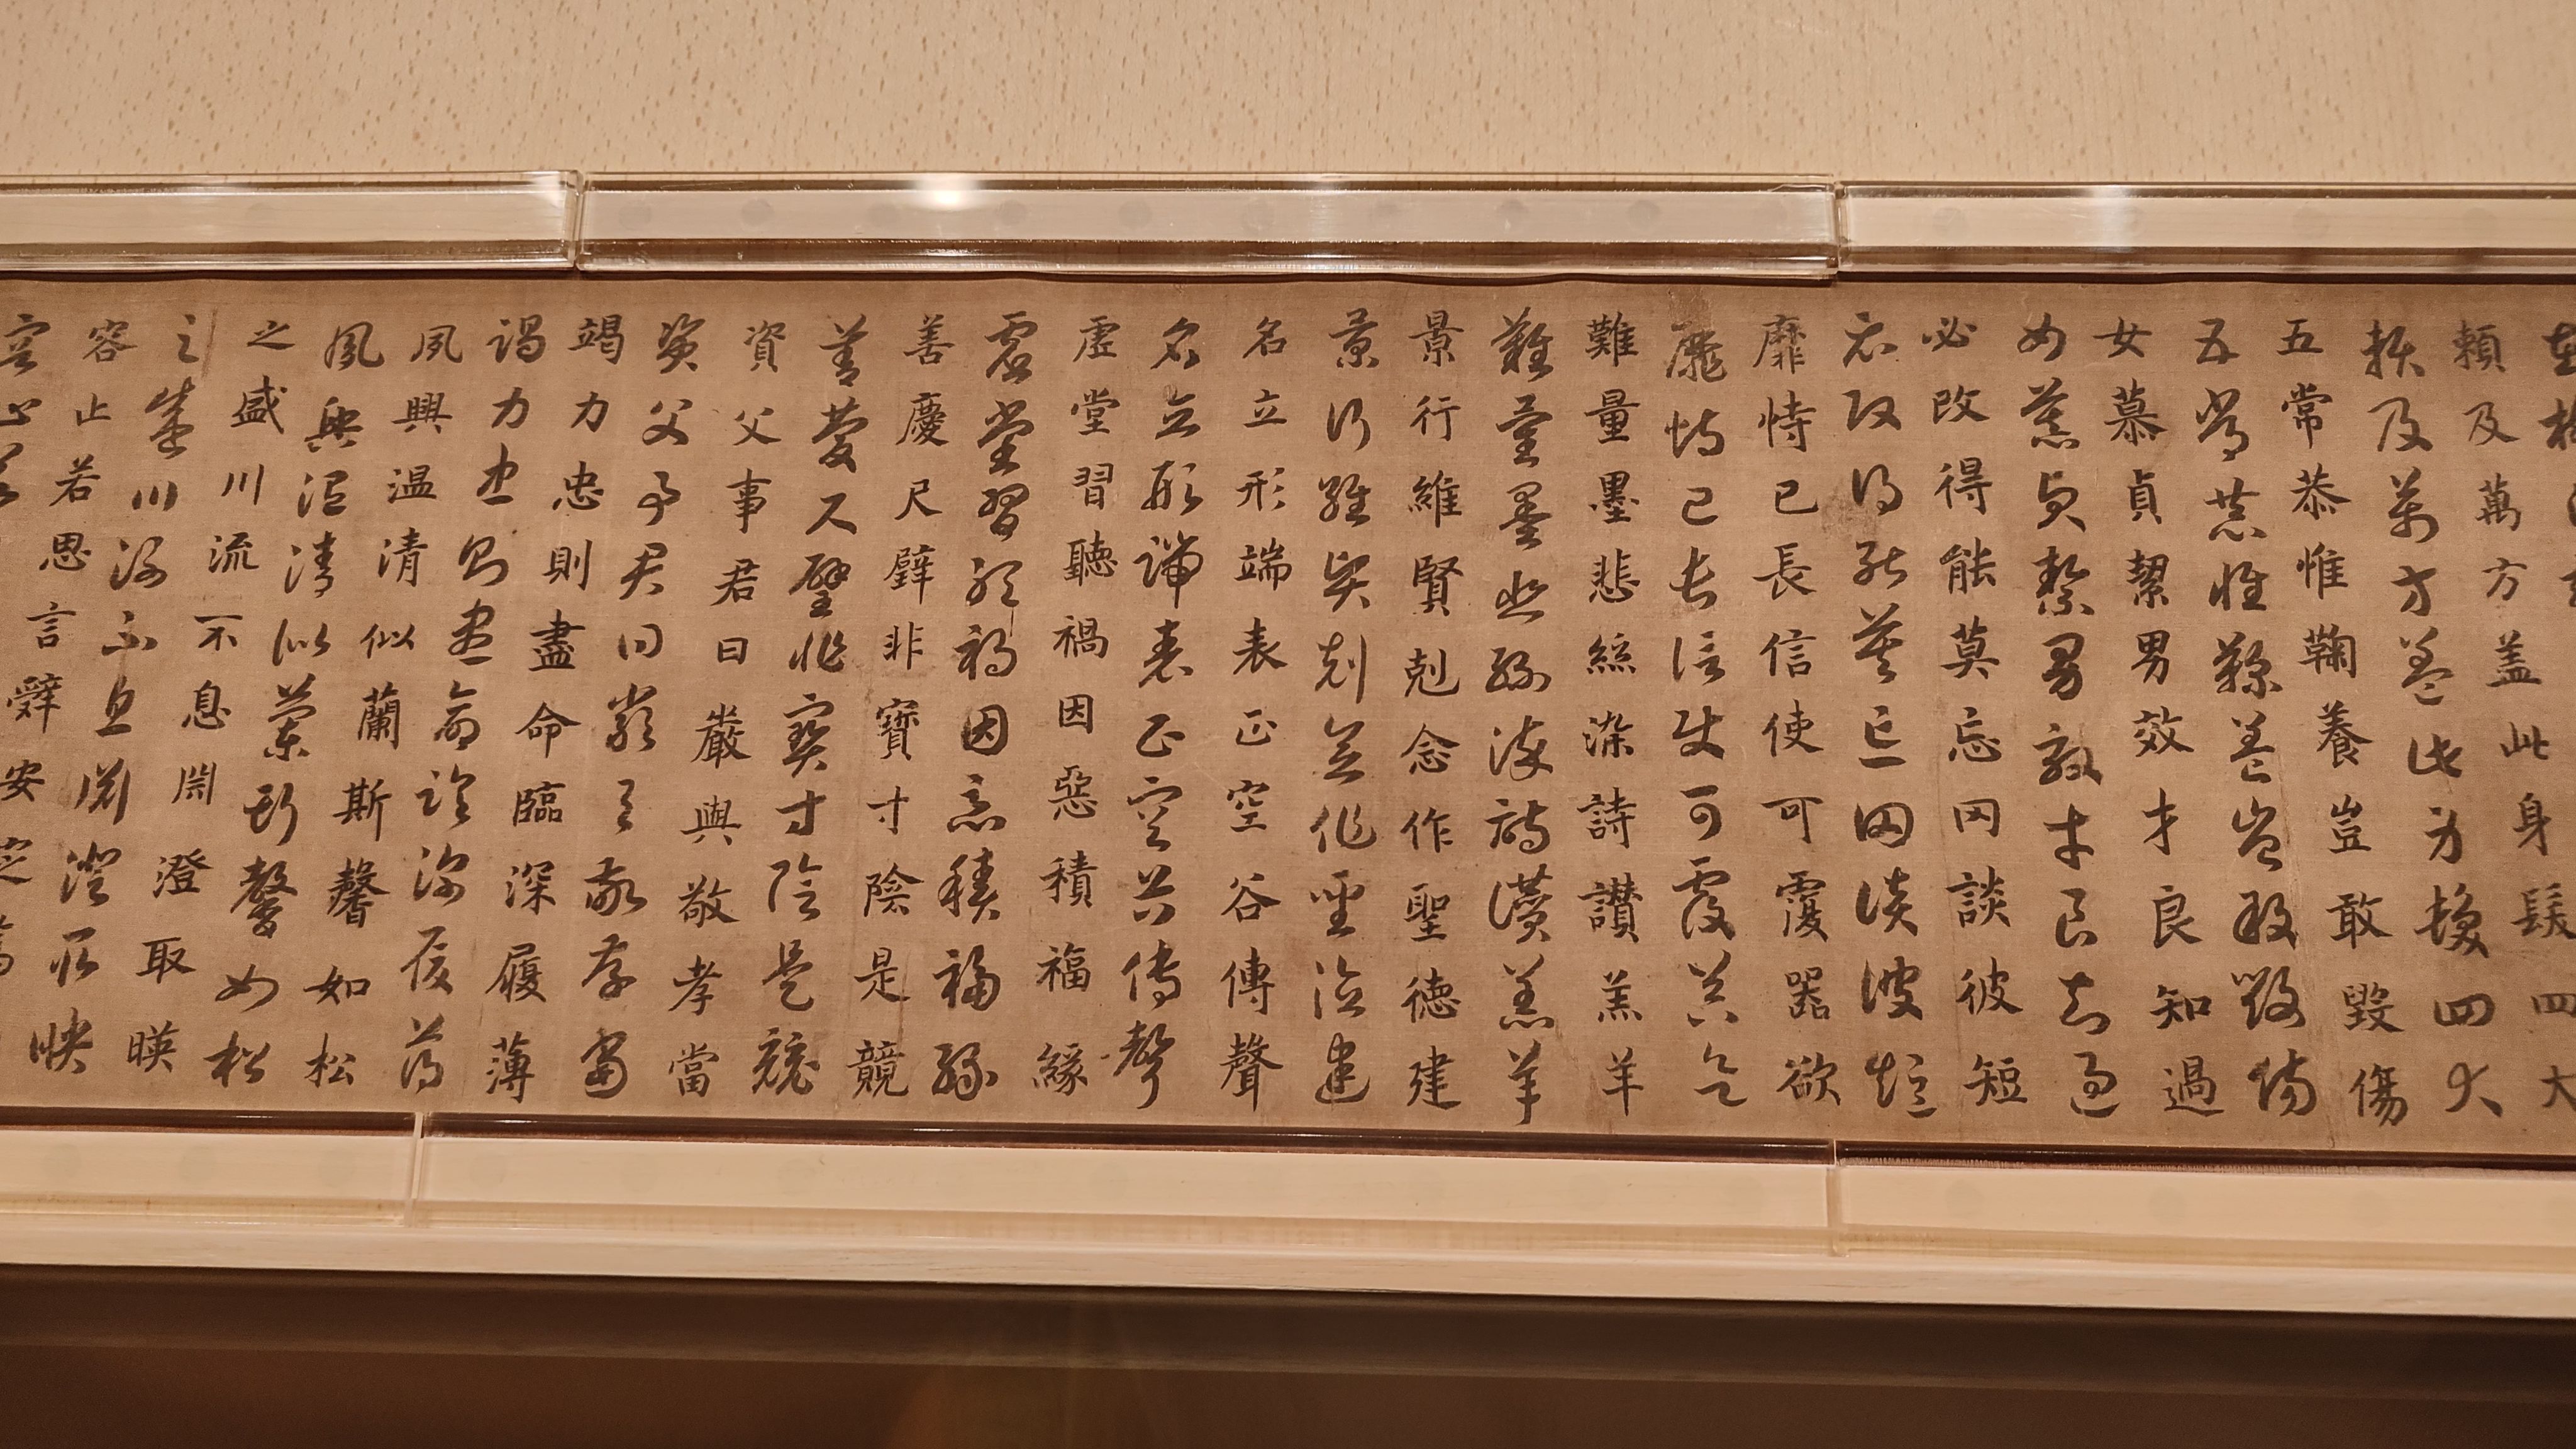 賴及萬方蓋此身髮四大
賴及萬方蓋此身髮四大
五常恭惟鞠養豈敢毀傷
五常恭惟鞠養豈敢毀傷
女慕貞絜男效才良知過
女慕貞絜男效才良知過
必改得能莫忘罔談彼短
必改得能莫忘罔談彼短
靡恃己長信使可覆器欲
靡恃己長信使可覆器欲
難量墨悲絲染詩讚羔羊
難量墨悲絲染詩讚羔羊
景行維賢剋念作聖德建
景行維賢剋念作聖德建
名立形端表正空谷傳聲
名立形端表正空谷傳聲
虛堂習聽禍因惡積福緣
虛堂習聽禍因惡積福緣
善慶尺璧非寶寸陰是競
善慶尺璧非寶寸陰是競
資父事君曰嚴與敬孝當
資父事君曰嚴與敬孝當
竭力忠則盡命臨深履薄
竭力忠則盡命臨深履薄
夙興溫清似蘭斯馨如松
夙興溫清似蘭斯馨如松
之盛川流不息淵澄取暎
之盛川流不息淵澄取暎
容止若思言辭安定
容止